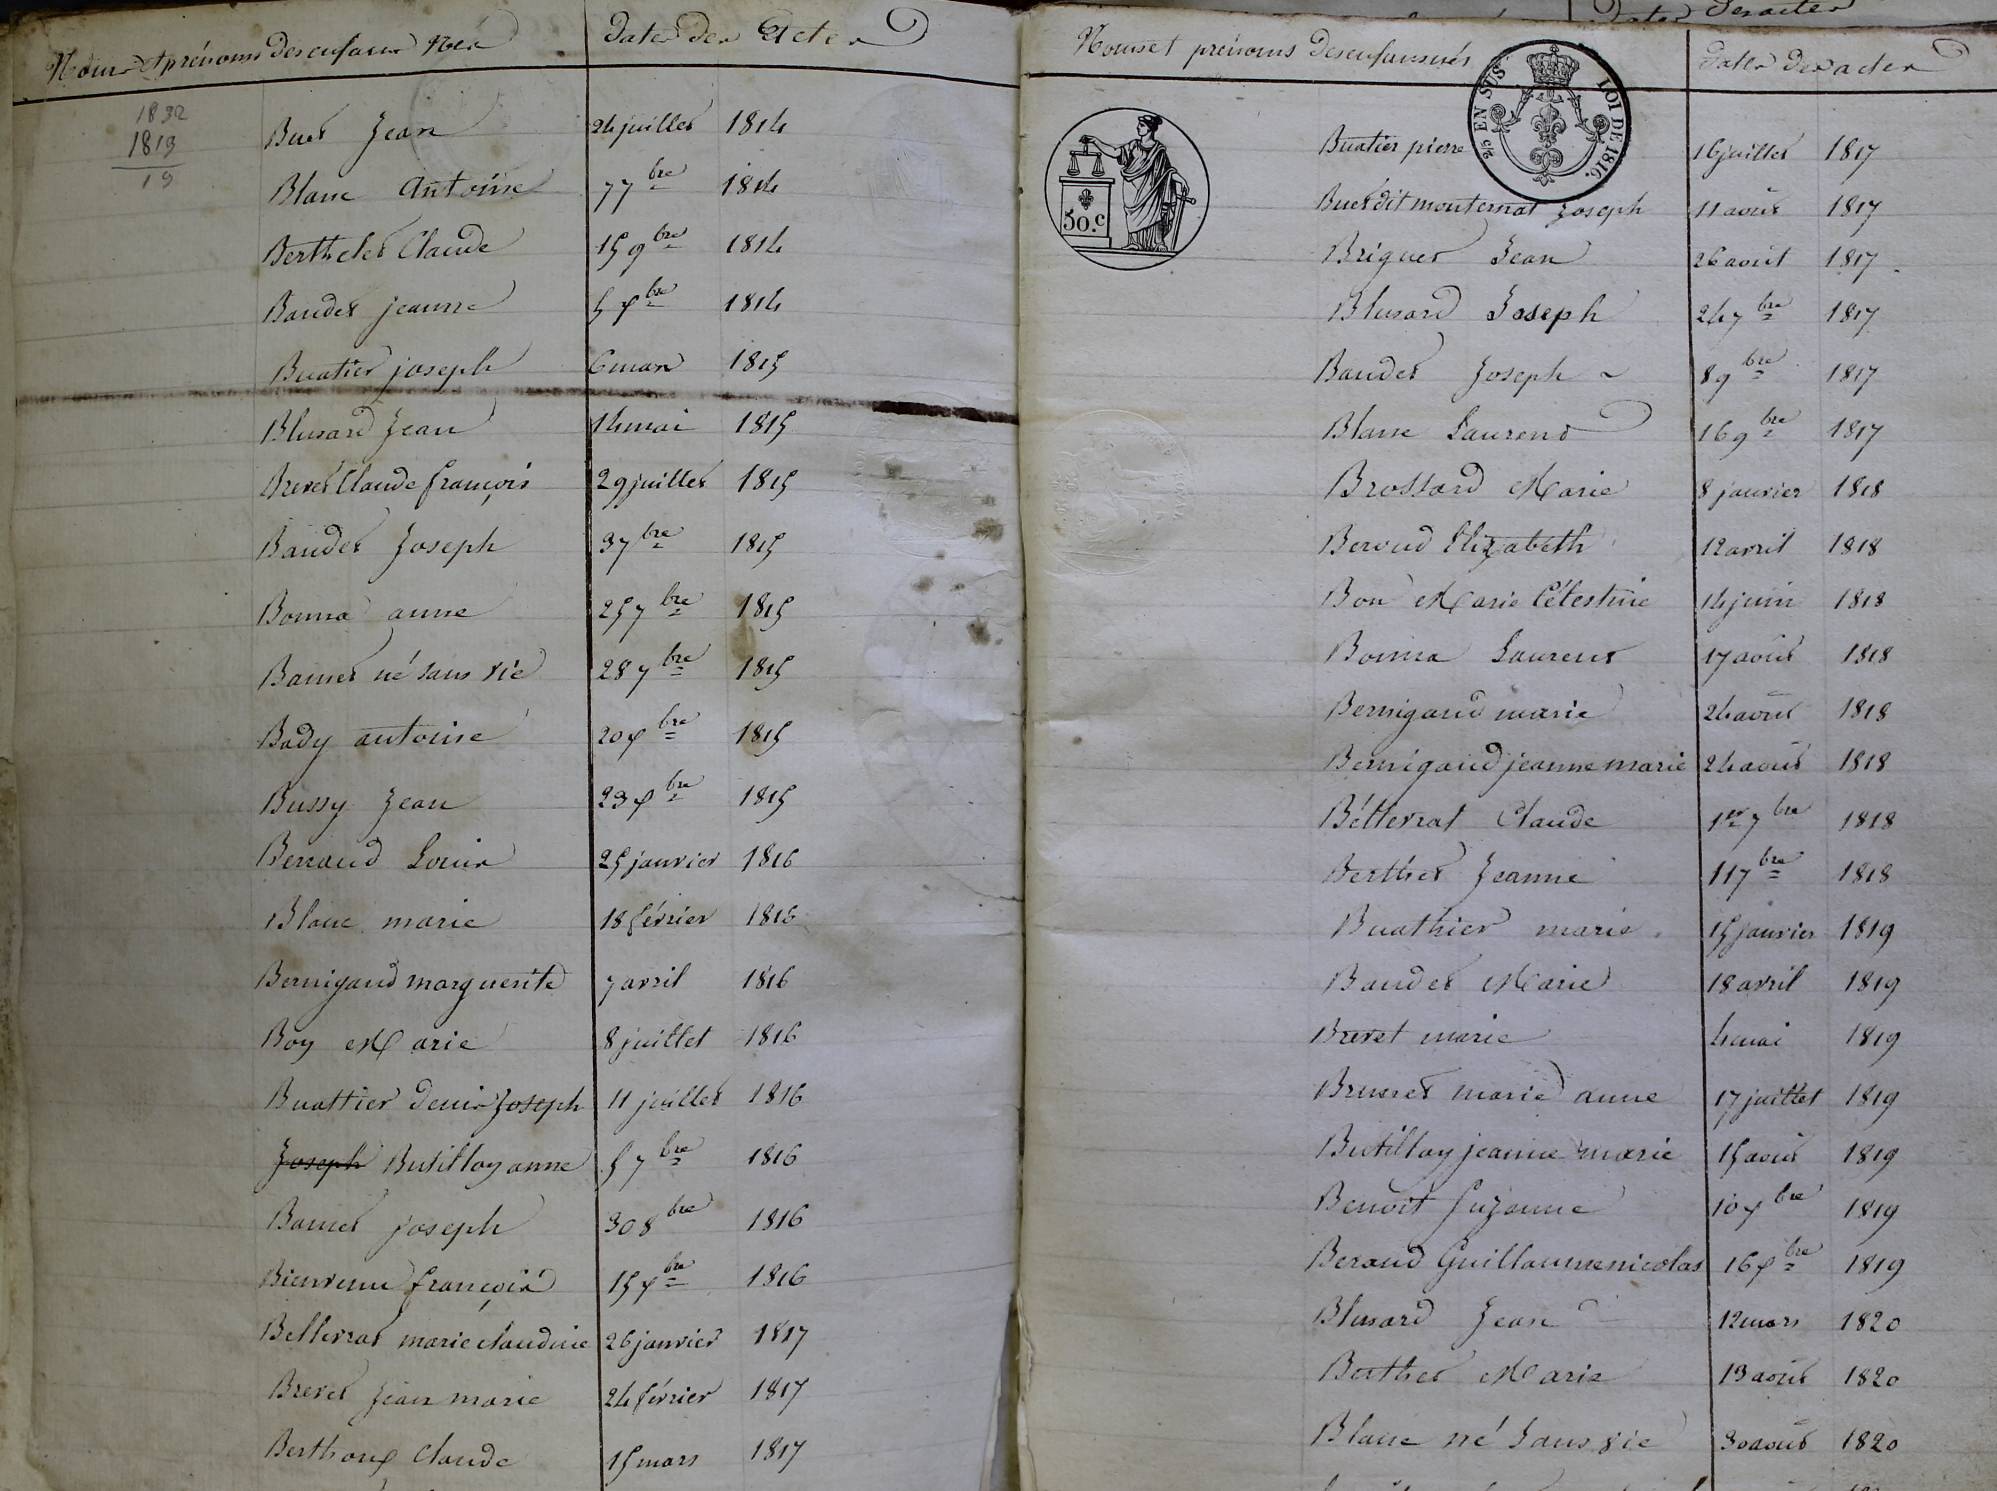 Noms et prénoms des enfans nés Date des Actes
1832
1813
19
Buet Jean 24 juillet 1814
Blanc Antoine 7 7bre 1814
Berthelet Claude 15 9bre 1814
Baudet jeanne 5 xbre 1814
Buatier joseph 6 mars 1815
Blusard Jean 14 mai 1815
Brevet Claude françois 29 juillet 1815
Baudet Joseph 3 7bre 1815
Bonna anne 25 7bre 1815
Barnet né sans vie 28 7bre 1815
Bady antoine 20 xbre 1815
Bussy Jean 23 xbre 1815
Berraud Louis 25 janvier 1816
Blanc marie 18 février 1816
Bernigaud marguerite 7 avril 1816
Boy Marie 8 juillet 1816
Buattier denis Joseph 11 juillet 1816
Joseph Butilloy anne 5 7bre 1816
Barnet joseph 30 8bre 1816
Bienvenu françois 15 xbre 1816
Bellerrat marie claudine 26 janvier 1817
Brevet Jean marie 24 février 1817
Berthoux Claude 15 mars 1817
Date des actes
Noms et prénoms des enfans nés Date des actes
2/5 EN SUS LOI DE 1816.
50.c
Buatier pierre 16 juillet 1817
Buet dit monternat Joseph 11 aout 1817
Briguet Jean 26 aout 1817
Blusard Joseph 24 7bre 1817
Baudet Joseph 8 9bre 1817
Blanc Laurend 16 9bre 1817
Brossard Marie 8 janvier 1818
Beroud Elizabeth 12 avril 1818
Bon Marie Célestine 14 juin 1818
Bonna Laurent 17 août 1818
Bernigaud marie 24 aout 1818
Bernigaud jeanne marie 24 aout 1818
Bétterrat Claude 1er 7bre 1818
Berthet Jeanne 11 7bre 1818
Buathier marie 15 janvier 1819
Baudet Marie 18 avril 1819
Brevet marie 4 mai 1819
Brunet marie anne 17 juillet 1819
Butilloy jeanne marie 15 aout 1819
Benoit Suzanne 10 xbre 1819
Beraud Guillaume nicolas 16 xbre 1819
Blusard Jean 12 mars 1820
Berthet Marie 13 aout 1820
Blanc né sans vie 30 aout 1820